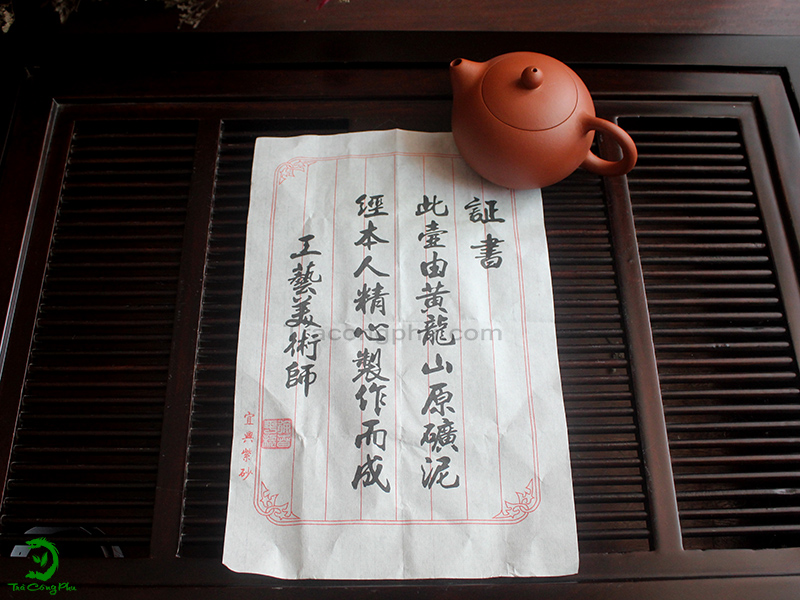 証書
此壺由黃龍山原礦泥
經本人精心製作而成
工藝美術師
宜興紫砂
Trà Công Phu